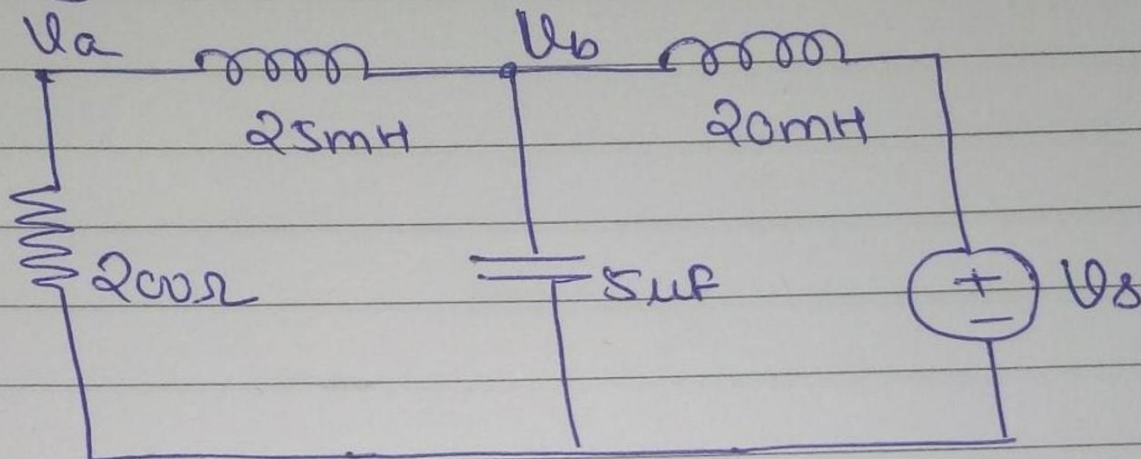 Va Vb
25mH 20mH
200Ω 5uF + Vs
−